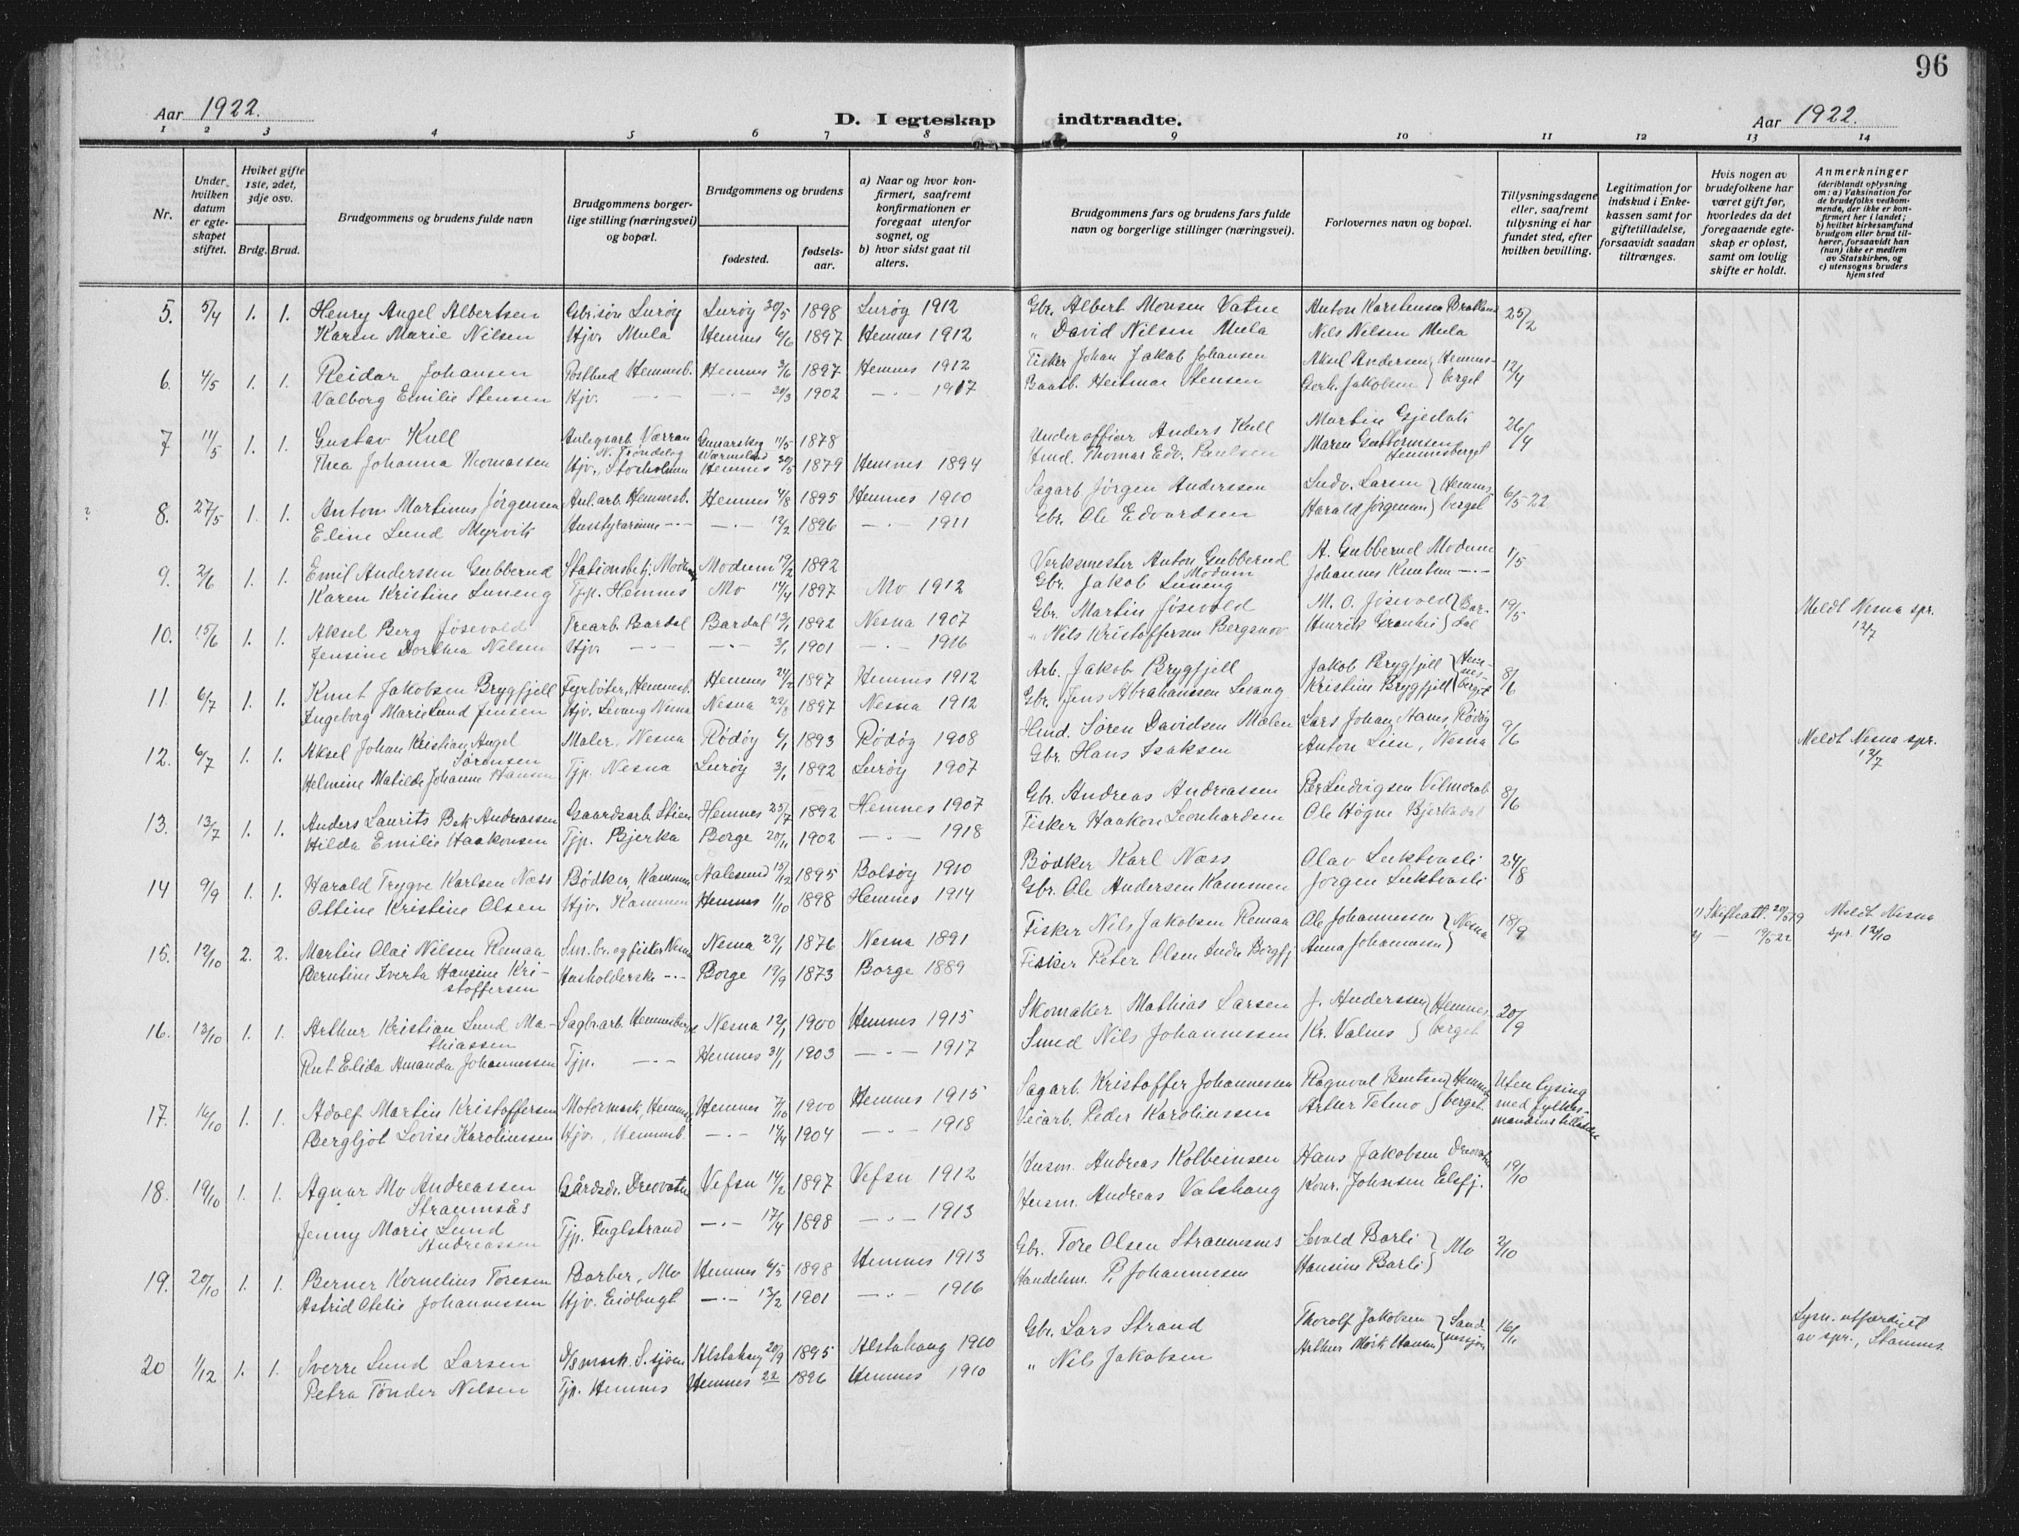 96
Aar 1922.
D. I egteskap indtraadte.
Aar 1922.
1 2 3 4 5 6 7 8 9 10 11 12 13 14
Nr.
Under hvilken datum er egteskapet stiftet.
Hviket gifte 1ste, 2det, 3dje osv.
Brdg. Brud.
Brudgommens og brudens fulde navn
Brudgommens borgerlige stilling (næringsvei) og bopæl.
Brudgommens og brudens
fødested.
fødselsaar.
a) Naar og hvor konfirmert, saafremt konfirmationen er foregaat utenfor sognet, og
b) hvor sidst gaat til alters.
Brudgommens fars og brudens fars fulde navn og borgerlige stillinger (næringsvei).
Forlovernes navn og bopæl.
Tillysningsdagene eller, saafremt tillysning ei har fundet sted, efter hvilken bevilling.
Legitimation for indskud i Enkekassen samt for giftetilladelse, forsaavidt saadan tiltrænges.
Hvis nogen av brudefolkene har været gift før, hvorledes da det foregaaende egteskap er opløst, samt om lovlig skifte er holdt.
Anmerkninger
(deriblandt oplysning om: a) Vaksination for de brudefolks vedkommende, der ikke er konfirmert her i landet; b) hvilket kirkesamfund brudgom eller brud tilhører, forsaavidt han (hun) ikke er medlem av Statskirken, og c) utensogns bruders hjemsted
5. 5/4 1. 1. Henry Angel Albertsen Gbr.søn Lurøy Lurøy 30/5 1898 Lurøy 1912 Gbr. Albert Monsen Vatne Anton Karstensen Bratland 25/2
Karen Marie Nilsen Hjv. Mula Hemnes 6/6 1897 Hemnes 1912 " David Nilsen Mula Nils Nilsen Mula
6. 4/5 1. 1. Reidar Johansen Postbud Hemnesb. Hemnes 3/6 1897 Hemnes 1912 Fisker Johan Jakob Johansen Aksel Andersen Hemnesberget 12/4
Valborg Emilie Stensen Hjv. — — — 30/3 1902 — 1917 Baatb. Heitmar Stensen Gerh. Jakobsen
7 11/5 1. 1. Gustav Kull Anlegsarb. Værran N. Trøndelag Gunarskog Wærmeland 11/5 1878 Underoffiser Anders Kull Martin Gjesbak 26/4
Thea Johanna Thomassen Hjv. Storholmen Hemnes 30/5 1879 Hemnes 1894 Smd. Thomas Edv. Paulsen Maren Guttormsen Hemnesberget
8. 27/5 1. 1. Anton Martinus Jørgensen Anl.arb. Hemnesb. Hemnes 4/8 1895 Hemnes 1910 Sagarb Jørgen Anderssen Ludv. Larsen Hemnesberget 6/5-22
Eline Lund Myrvik — — 12/2 1896 — 1911 Gbr. Ole Edvardsen Harald Jørgensen
9. 2/6 1. 1. Emil Anderssen Gubberud Stationsbetj. Modum Modum 19/2 1892 Verksmester Anton Gubberud Modum A. Gubberud Modum 1/5
Karen Kristine Luneng Tjp. Hemnes Mo 14/4 1897 Mo 1912 Gbr. Jakob Luneng Johannes Knutsen — —
10. 15/6 1. 1. Aksel Berg Jøsevold Trearb. Bardal Bardal 13/1 1892 Nesna 1907 Gbr. Martin Jøsevold M. O. Jøsevold Bardal 19/5 Meldt Nesna spr. 12/7
Jensine Dorthea Nilsen Hjv. — — 3/1 1901 — 1916 " Nils Kristoffersen Bergsnov Henrik Granhei
11. 6/7 1. 1. Knut Jakobsen Brygfjell Fyrbøter, Hemnesb. Hemnes 24/2 1897 Hemnes 1912 Arb. Jakob Brygfjell Jakob Brygfjell Hemnesberget 8/6
Ingeborg Marie Lund Jensen Hjv. Levang Nesna Nesna 22/8 1897 Nesna 1912 Gbr. Jens Abrahamsen Levang Kristine Brygfjell
12. 6/7 1. 1. Aksel Johan Kristian Angel Sörensen Maler, Nesna Rödöy 6/1 1893 Rödöy 1908 Hmd. Søren Davidsen Målen Lars Johan Hans, Rödöy 9/6 Meldt Nesna spr. 12/7
Helmine Matilde Johanne Hansen Tjp. Nesna Luröy 3/1 1892 Luröy 1907 Gbr. Hans Isaksen Anton Lien, Nesna
13. 13/7 1. 1. Anders Laurits Bek Andreassen Gaardsarb. Stien Hemnes 25/7 1892 Hemnes 1907 Gbr. Andreas Andreassen Per Ludvigsen 8/6
Hilda Emilie Haakonsen Tjp. Bjerka Borge 20/1 1902 — 1918 Fisker Haakon Leonhardsen Ole Høgne Bjerkadal
14 9/9 1. 1. Harald Trygve Karlsen Næss Bødker, Kammen Aalesund 15/12 1895 Bolsöy 1910 Bødker Karl Næss Olav Luktvasli 24/8
Ottine Kristine Olsen Hjv. Kammen Hemnes 1/10 1898 Hemnes 1914 Gbr. Ole Andersen Kammen Jørgen Luktvasli
15. 12/10 2. 2. Martin Olai Nilsen Remaa Sm.br. og fisker Nesna Nesna 29/1 1876 Nesna 1891 Fisker Nils Jakobsen Remaa Ole Johannessen Nesna 18/9 1) Skifteatt. 20/5 19 Meldt Nesna spr. 12/10
Berntine Iverta Hansine Kristoffersen Husholderske — Borge 19/9 1873 Borge 1889 Fisker Peter Olsen Indre Borgfj Anna Johannesen 2) — 19/5 22
16. 13/10 1. 1. Arthur Kristian Lund Mathiassen Sagbr.arb. Hemnesberg Nesna 12/1 1900 Hemnes 1915 Skomaker Mathias Larsen J. Anderssen Hemnesberget 20/9
Rut Elida Amanda Johannessen Tjp. — — Hemnes 31/1 1903 — 1917 Smed Nils Johannessen Kr. Valnes
17. 16/10 1. 1. Adolf Martin Kristoffersen Motormask, Hemnes Hemnes 7/10 1900 Hemnes 1915 Sagarb. Kristoffer Johannessen Ragnvat Bentsen Hemnesberget Uten lysing med fylkesmandens tilladelse
Bergljot Lovise Karolinssen Hjv. Hemnesb. — 14/4 1904 — 1918 Veiarb. Peder Karolinssen Arthur Telmo
18. 19/10 1. 1. Agnar Mo Andreassen Straumsås Gårdsdr. Drevatne Vefsn 14/2 1897 Vefsn 1912 Husm. Andreas Kolbeinsen Hans Jakobsen Drevatne 19/10
Jenny Marie Lund Andreassen Tjp. Fuglstrand — 17/4 1898 — 1913 Husm. Andreas Valshaug Konr. Johnsen Elsfj.
19. 20/10 1. 1. Berner Kornelius Toresen Barber, Mo Hemnes 6/5 1898 Hemnes 1913 Gbr. Tore Olsen Straumsnes Sevald Barli Mo 2/10
Astrid Otelie Johannessen Hjv. Eidbugt — 13/2 1901 — 1916 Handelsm. P. Johannessen Hansine Barli
20 1/12 1. 1. Sverre Lund Larsen D/S mask. S.sjøen Alstahaug 20/9 1895 Alstahaug 1910 Gbr. Lars Strand Thorolf Jakobsen Sandnessjøen 16/11 Lysn. utfærdiget av spr., Stamnes.
Petra Tönder Nilsen Tjp. Hemnes Hemnes 22 1896 Hemnes 1910 " Nils Jakobsen Arthur Mørk Hansen